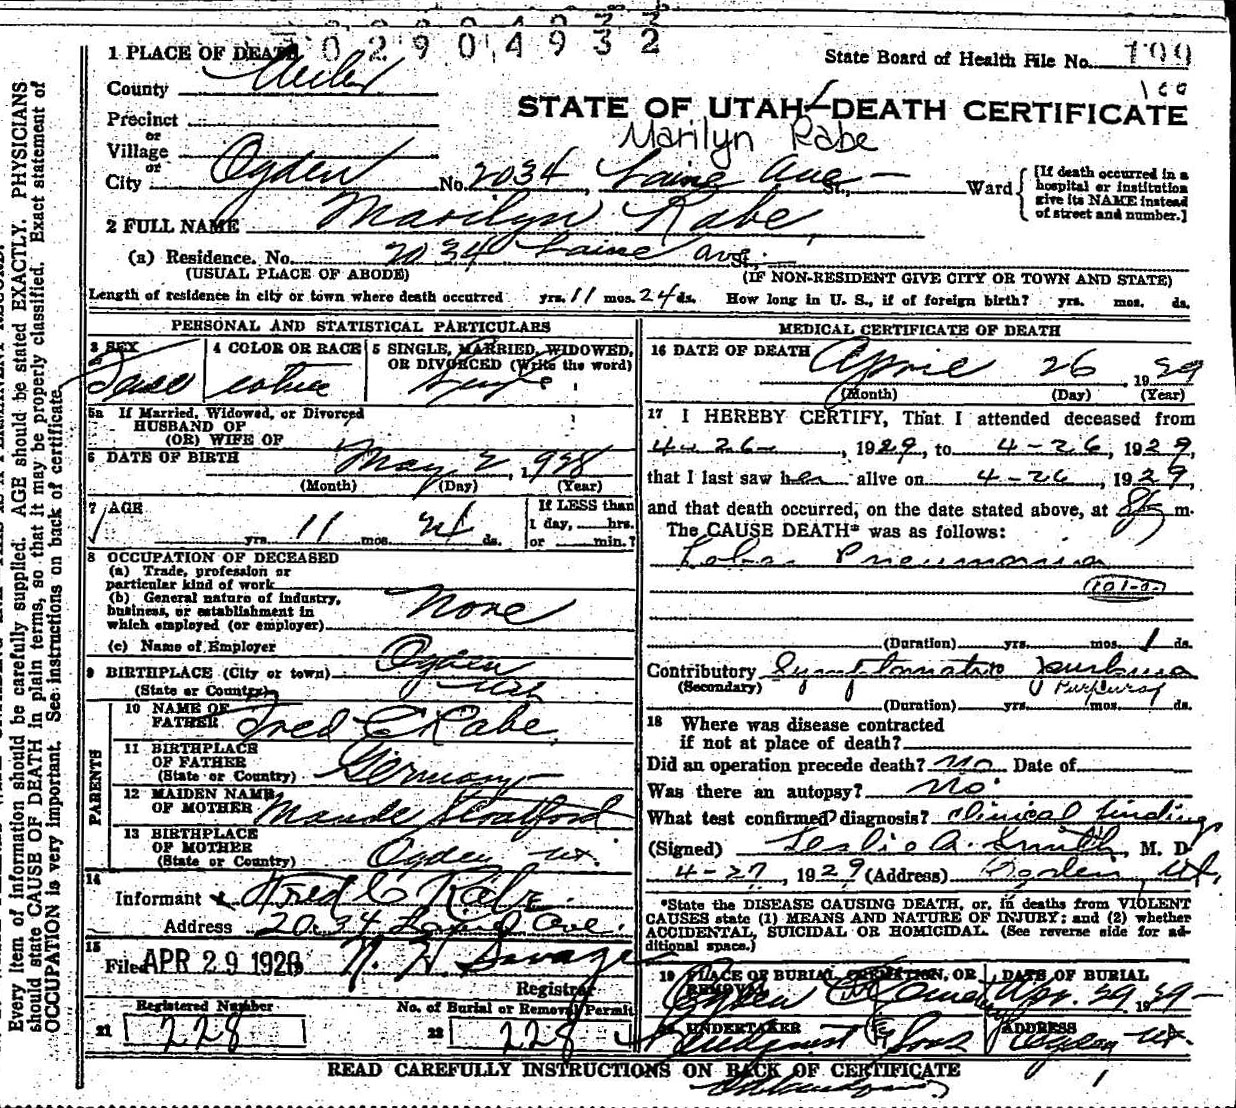 0 2 9 0 4 9 3 2
1 PLACE OF DEATH
State Board of Health File No. 199
County Weber
100
STATE OF UTAH—DEATH CERTIFICATE
Precinct
or
Marilyn Rabe
Village
or
City Ogden No. 2034 Ave St., Ward
[If death occurred in a hospital or institution give its NAME instead of street and number.]
2 FULL NAME Marilyn Rabe
(a) Residence. No. 2034 Ave St.
(USUAL PLACE OF ABODE) (IF NON-RESIDENT GIVE CITY OR TOWN AND STATE)
Length of residence in city or town where death occurred yrs. 11 mos. 24 ds. How long in U. S., if of foreign birth? yrs. mos. ds.
PERSONAL AND STATISTICAL PARTICULARS
3 SEX
4 COLOR OR RACE
5 SINGLE, MARRIED, WIDOWED, OR DIVORCED (Write the word)
Single
5a If Married, Widowed, or Divorced
HUSBAND OF
(OR) WIFE OF
6 DATE OF BIRTH May 2, 1928
(Month) (Day) (Year)
7 AGE
yrs. 11 mos. 24 ds.
If LESS than 1 day, hrs. or min.?
8 OCCUPATION OF DECEASED
(a) Trade, profession or particular kind of work
(b) General nature of industry, business, or establishment in which employed (or employer) None
(c) Name of Employer
9 BIRTHPLACE (City or town) Ogden
(State or Country) Utah
PARENTS
10 NAME OF FATHER Fred C Rabe
11 BIRTHPLACE OF FATHER (State or Country) Germany
12 MAIDEN NAME OF MOTHER Maude Stratford
13 BIRTHPLACE OF MOTHER (State or Country) Ogden Ut.
14
Informant Fred C Rabe
Address 2034 Ave.
15
Filed APR 29 1929 Savage
Registrar
Registered Number
21 228
No. of Burial or Removal Permit
22 228
MEDICAL CERTIFICATE OF DEATH
16 DATE OF DEATH April 26, 1929
(Month) (Day) (Year)
17 I HEREBY CERTIFY, That I attended deceased from
4-26-, 1929, to 4-26, 1929,
that I last saw her alive on 4-26, 1929,
and that death occurred, on the date stated above, at m.
The CAUSE DEATH* was as follows:
Lobar Pneumonia
101-0
(Duration) yrs. mos. 1 ds.
Contributory Symptomatic purpura
(Secondary)
(Duration) yrs. mos. ds.
18 Where was disease contracted
if not at place of death?
Did an operation precede death? no Date of
Was there an autopsy? No
What test confirmed diagnosis? clinical findings
(Signed) Leslie A. Smith, M. D.
4-27, 1929 (Address) Ogden, Ut.
*State the DISEASE CAUSING DEATH, or, in deaths from VIOLENT
CAUSES state (1) MEANS AND NATURE OF INJURY; and (2) whether
ACCIDENTAL, SUICIDAL OR HOMICIDAL. (See reverse side for ad-
ditional space.)
19 PLACE OF BURIAL, CREMATION, OR REMOVAL
Ogden City Cemetery
DATE OF BURIAL
Apr. 29 1929
20 UNDERTAKER
Lindquist & Sons
ADDRESS
Ogden Ut.
READ CAREFULLY INSTRUCTIONS ON BACK OF CERTIFICATE
Every item of information should be carefully supplied. AGE should be stated EXACTLY. PHYSICIANS
should state CAUSE OF DEATH in plain terms, so that it may be properly classified. Exact statement of
OCCUPATION is very important. See instructions on back of certificate.